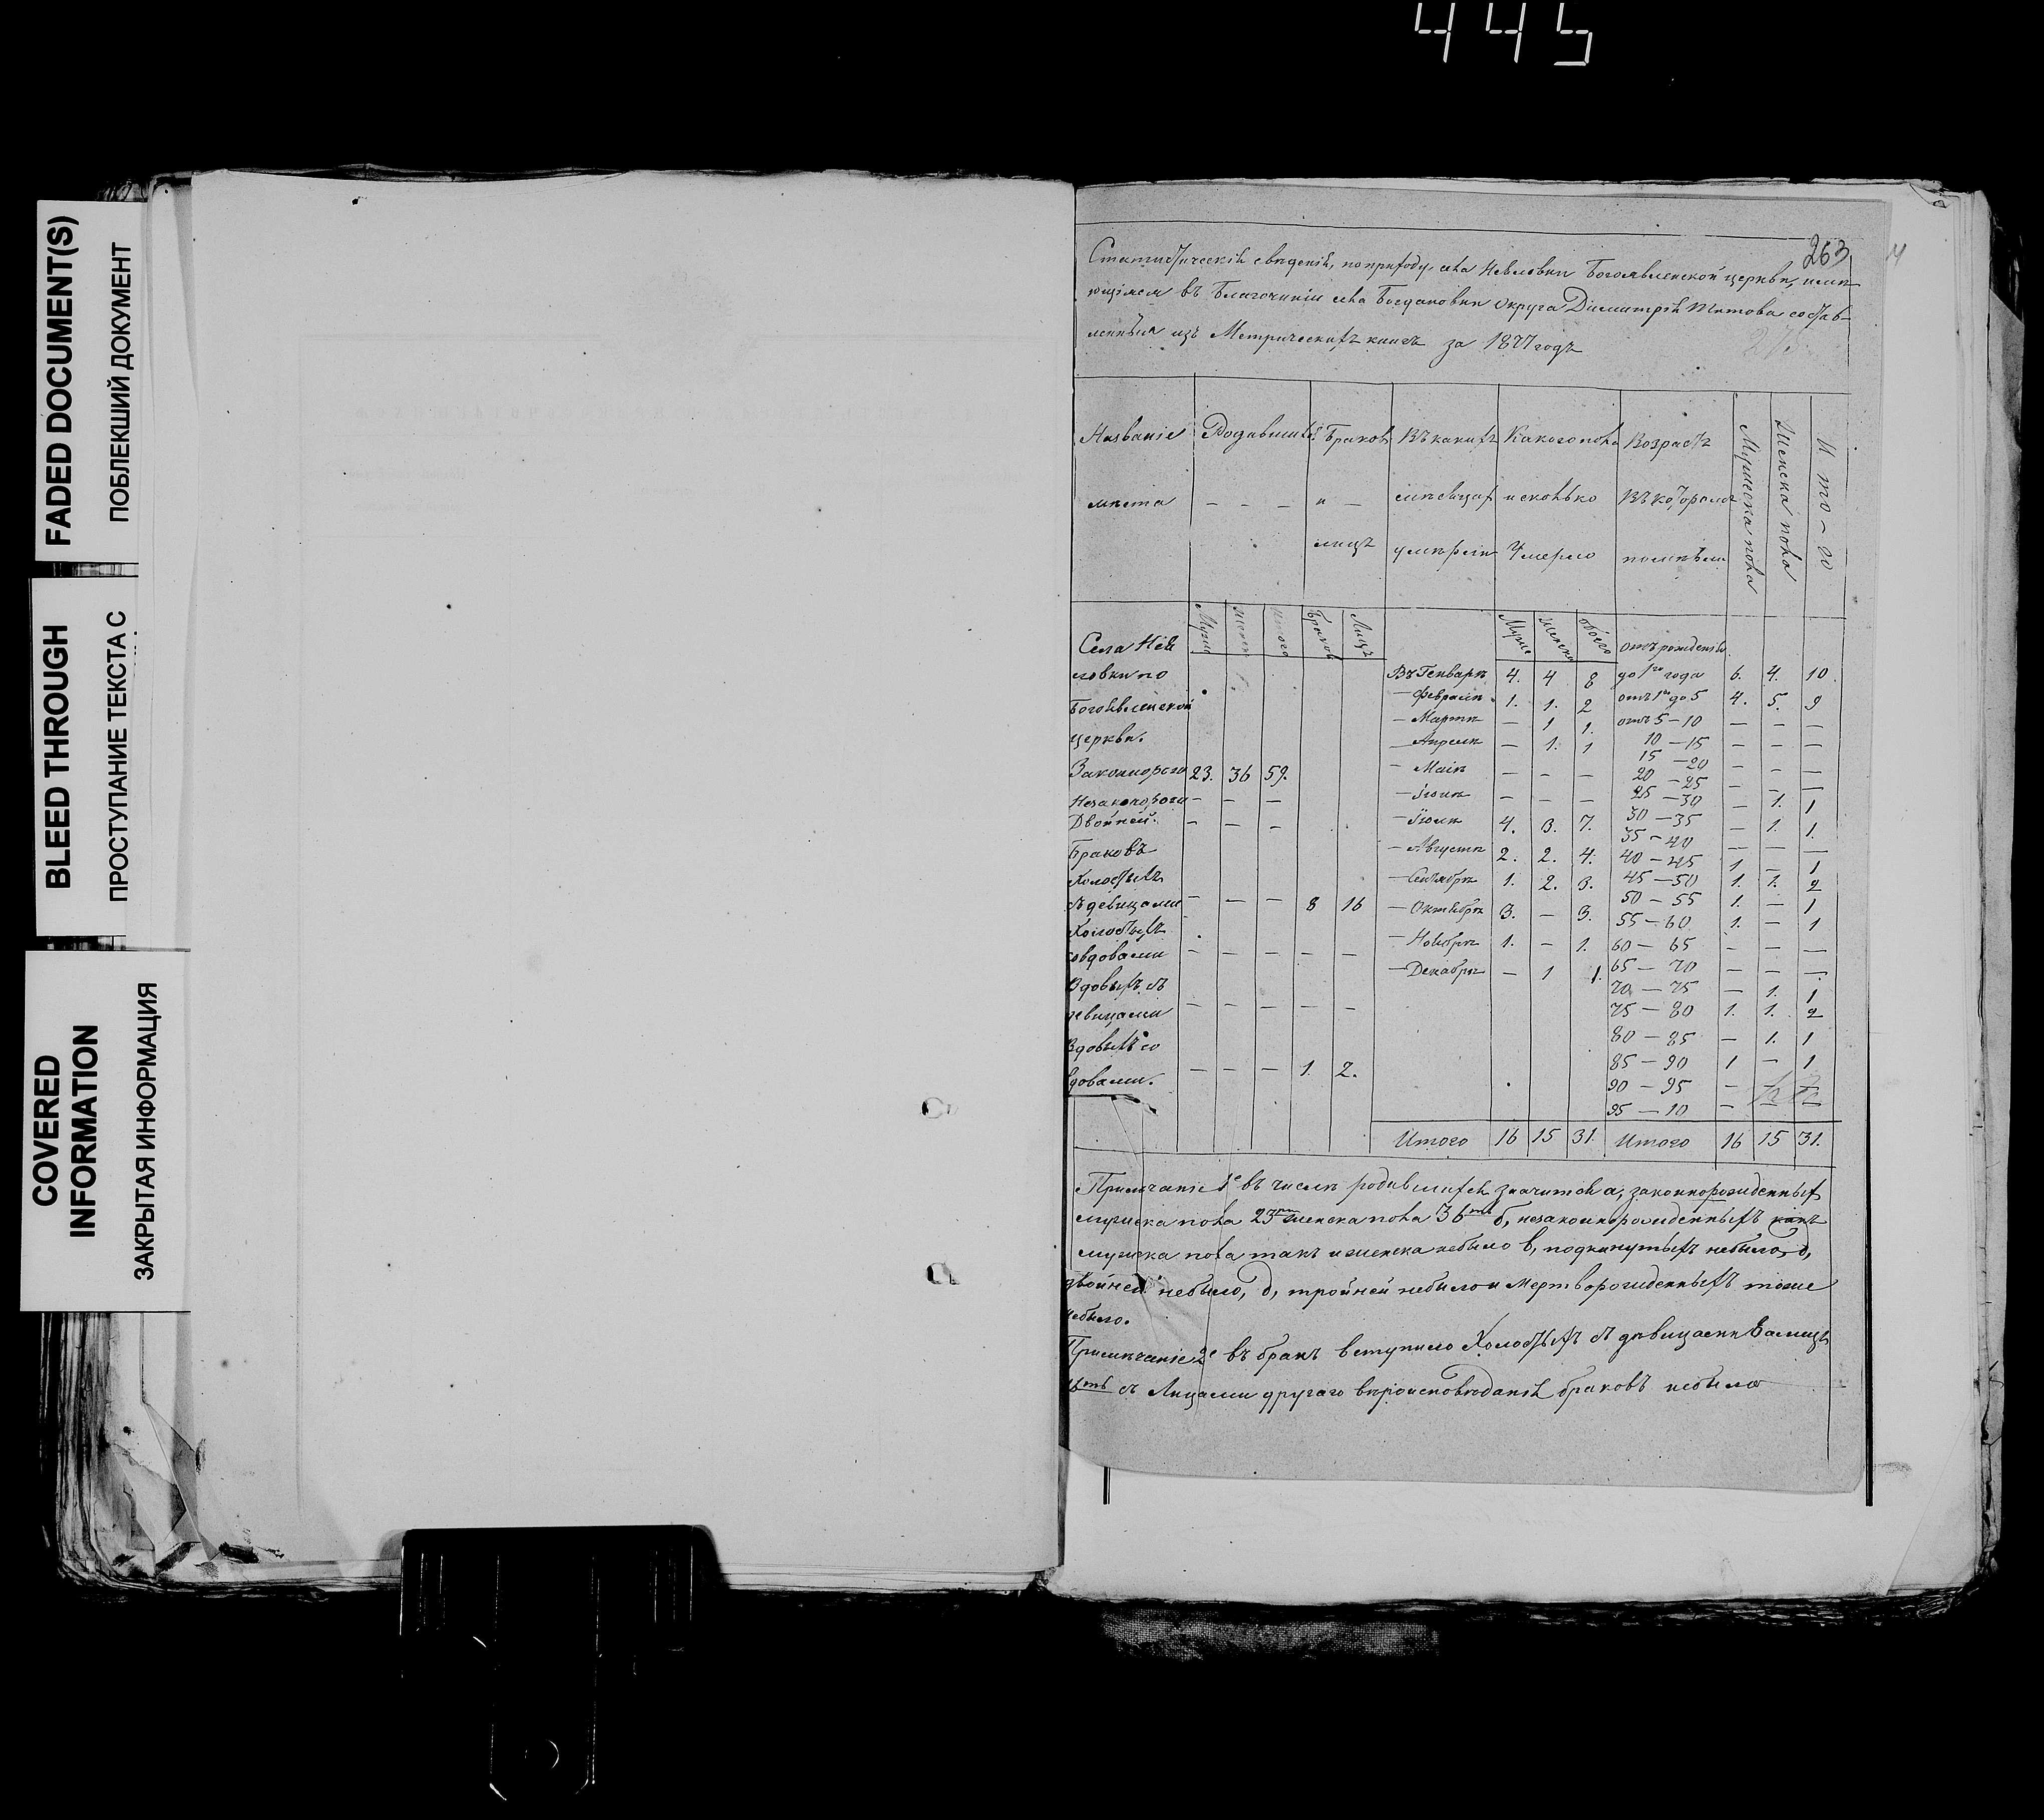 445
FADED DOCUMENT(S)
ПОБЛЕКШИЙ ДОКУМЕНТ
BLEED THROUGH
ПРОСТУПАНИЕ ТЕКСТА С
COVERED
INFORMATION
ЗАКРЫТАЯ ИНФОРМАЦИЯ
263
Статистическія сведенія, по приходу, села Невловки Богоявленской церкви, имѣ-
ющімся въ Благочиніи села Богдановки Округа Димитрія Титова состав-
ленныя изъ Метрическихъ книгъ за 1877 годъ
Названіе Родившихся Браковъ Въ какихъ Какого пола Возрастъ Мужеска пола Женска пола И то-го
мѣста - - - и - мѣсяцах и сколько Въ которомъ
лицъ умѣрли Умерло
Мужс Женск Итого Браков Лицъ Мужс Женска Обоего
Села Нев отъ рожденія
ловки по Въ Генварѣ 4. 4 8 до 1го года 6. 4. 10
Богоявленской - Февралѣ 1. 1. 2 отъ 1го до 5 4. 5. 9
церкви. - Мартѣ - 1 1. отъ 5-10 - - -
- Апрелѣ - 1. 1 10-15 - - -
15-20 - - -
Законнорож 23. 36 59. - Маіѣ - - - 20-25 - - -
Незаконорож - - - - Іюнѣ - - - 25-30 - 1. 1
Двойней. - - - - Іюлѣ 4. 3. 7. 30-35 - 1. 1.
35-40 - - -
Браковъ - Августѣ 2. 2. 4. 40-45 1 - 1
Холостыхъ - Сентябрѣ 1. 2. 3. 45-50 1. 1. 2
съ девицами - - - 8 16 - Октябрѣ 3. - 3. 50-55 1. - 1
Холостыхъ 55-60 1. - 1
со вдовами - - - - - - Ноябрѣ 1. - 1. 60-65 - - -
Вдовыхъ съ - Декабрѣ - 1 1. 65-70 - - -
70-75 - 1. 1
девицами - - - - - 75-80 1. 1. 2
Вдовыхъ со 80-85 - 1. 1
вдовами. - - - 1. 2. 85-90 1 - 1
90-95 -
95-10 - - -
Итого 16 15 31. Итого 16 15 31.
Примѣчаніе 1е въ числѣ родившихся значится а, законнорожденныхъ
мужска пола 23 женска пола 36ть б, незаконнорожденныхъ какъ
мужска пола такъ и женска небыло в, подкинутыхъ небыло,
двойней небыло, д, тройней небыло и мертворожденныхъ тоже
небыло.
Примѣчаніе 2е въ бракъ вступило Холостыхъ съ дѣвицами 8 лицъ
16ть съ Лицами другаго вѣроисповѣданія браковъ небыло